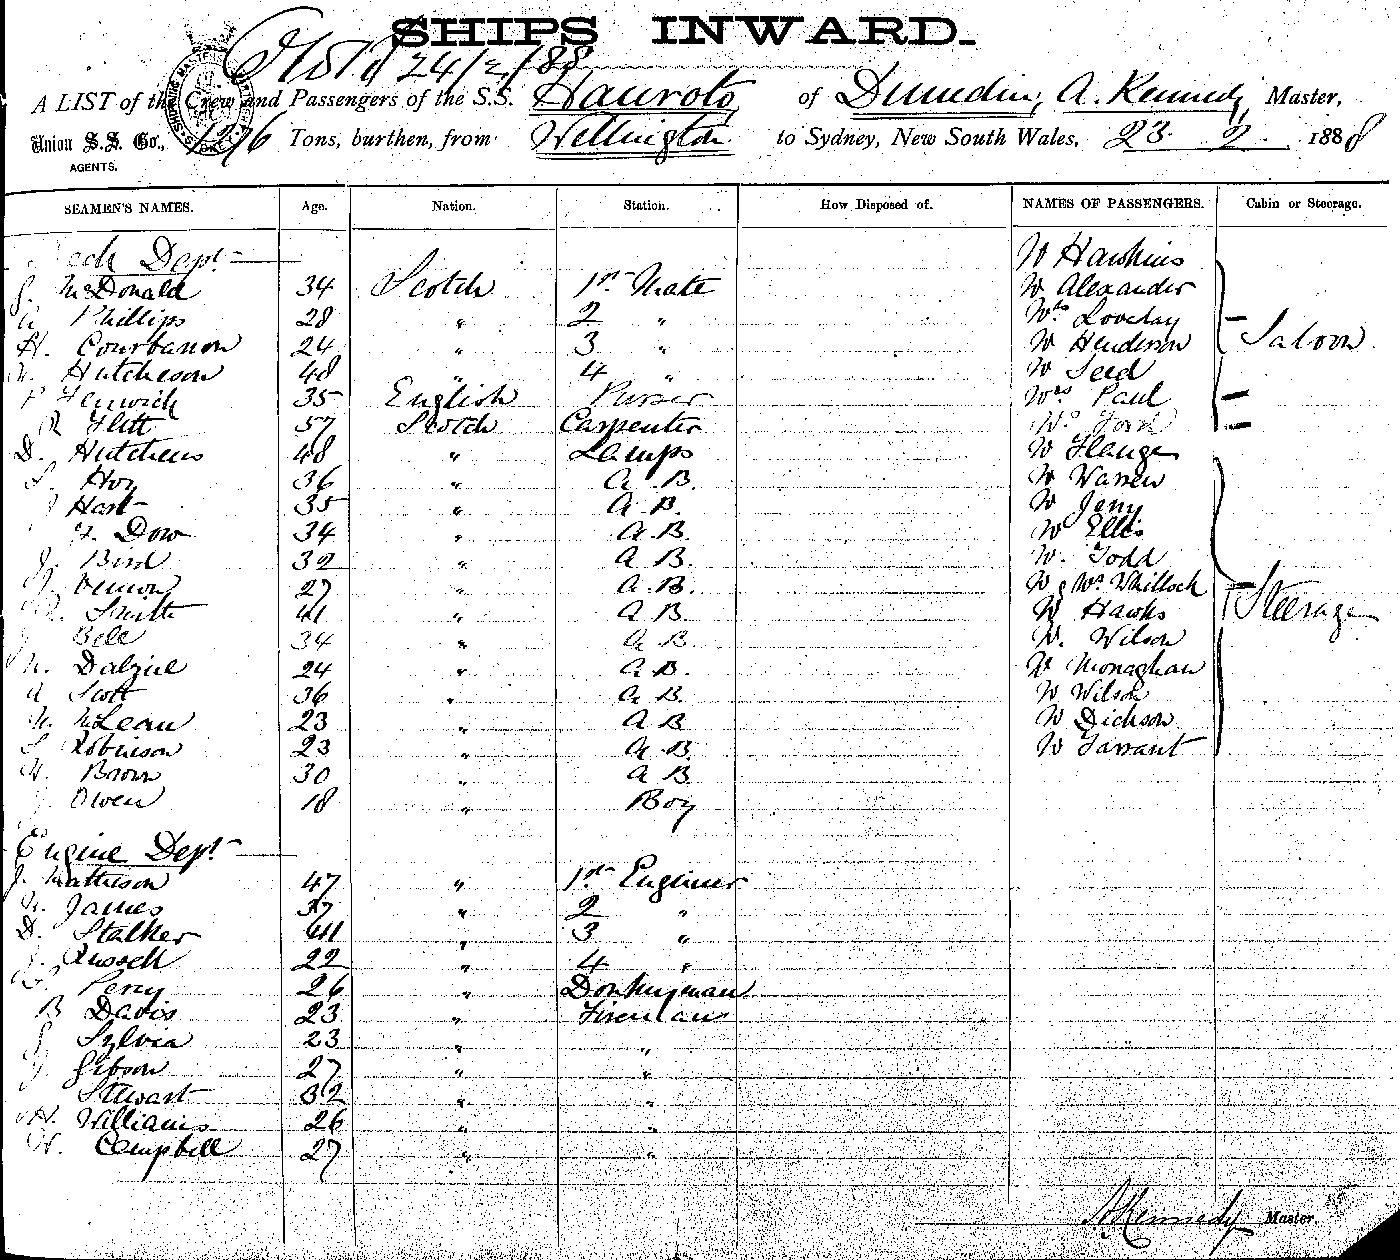 SHIPS INWARD.
24/2/88
A LIST of the Crew and Passengers of the S.S. Hauroto of Dunedin, A. Kennedy, Master,
Union S.S. Co., 1276 Tons, burthen, from Wellington to Sydney, New South Wales, 23 2 1888
AGENTS.
SEAMEN'S NAMES. Age. Nation. Station. How Disposed of. NAMES OF PASSENGERS. Cabin or Steerage.
Deck Dept Mr Hawkins
J. McDonald 34 Scotch 1st Mate Mr Alexander
A Phillips 28 " 2 " Mrs Loveday
H. Courbarron 24 " 3 " Mr Henderson Saloon
Hutcheson 48 " 4 " Mr Seed
Fenwick 35 English Purser Mrs Paul
R Flett 57 Scotch Carpenter Mrs Ford
D. Hutchens 48 " Lamps Mr Flange
Hoy 36 " A.B. Mr Warren
Hart 35 " A.B. Mr Jerry
Dow 34 " A.B. Mr Ellis
J. Bird 32 " A B. Mr Todd
Vernon 27 " A.B. Mr & Mrs Whillock
Smith 41 " A B. Mr Hawks Steerage
Bell 34 " A B. Mr. Wilson
Dalziel 24 " A.B. Mr Monaghan
A Scott 36 " A B. Mr Wilson
McLean 23 " A B Mr Dickson
Robinson 23 " A.B. Mr Tarrant
Brown 30 " A B.
Owen 18 " Boy
Engine Dept
J. Mathieson 47 " 1st Engineer
James 37 " 2 "
D. Stalker 41 " 3 "
Russell 22 " 4 "
Perry 26 " Donkeyman
B Davis 23 " Firemans
Sylvia 23 " "
Gibson 27 " "
Stewart 32 " "
H. Williams 26 " "
Campbell 27 " "
A Kennedy Master.